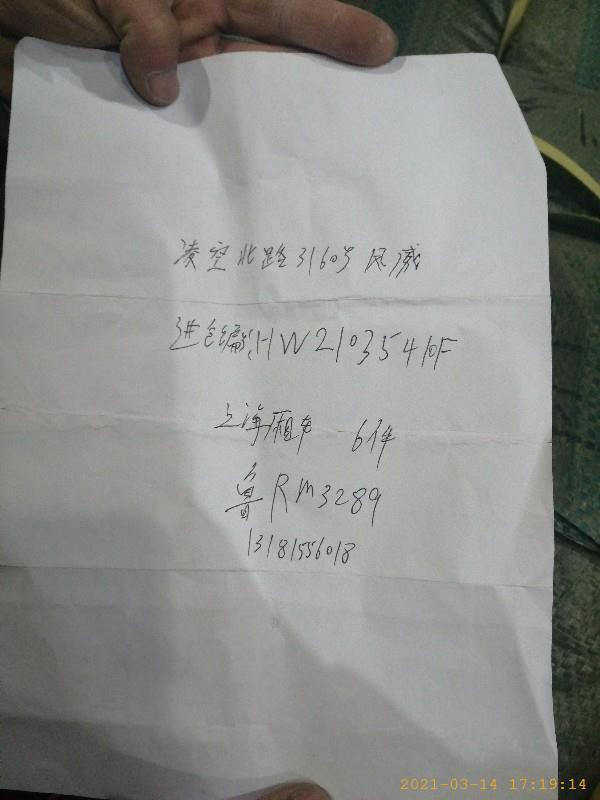 凌空北路3160号 风威
进仓编号:HW2103541OF
上海厢车 6件
鲁RM3289
13181556018
2021-03-14 17:19:14